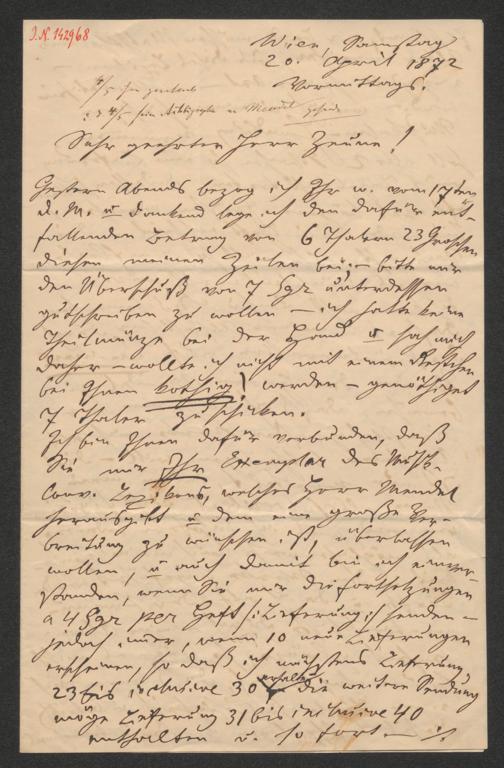 I.N. 142968
Wien, Samstag
20. April 1872
Vormittags.
Sehr geehrter Herr Zeune!
Gestern Abends bezog ich Ihr w. vom 17ten
d. M. u dankend lege ich den dafür ent-
fallenden Betrag von 6 Thalern 23 Groschen
diesen meinen Zeilen bei; – bitte mir
den Überschuß von 7 Sgr unterdessen
gutschreiben zu wollen – ich hatte keine
Theilmünze bei der Hand u sah mich
daher – wollte ich nicht mit einem Restchen
bei Ihnen kothig! werden – genöthiget
7 Thaler zu schicken.
Ich bin Ihnen dafür verbunden, daß
Sie mir Ihr Exemplar des Musik-
Conv. Lexikons, welches Herr Mendel
herausgibt u dem eine große Ver-
breitung zu wünschen ist, überlassen
wollen, u auch damit bin ich einver-
standen, wenn Sie mir die Fortsetzungen
a 4 Sgr per Heft /: Lieferung :/ senden –
jedoch immer, wenn 10 neue Lieferungen
erscheinen, so daß ich nächstens Lieferung
23 bis inclusive 30 erhalte die weitere Sendung
möge Lieferung 31 bis inclusive 40
enthalten u. so fort. – ·/.